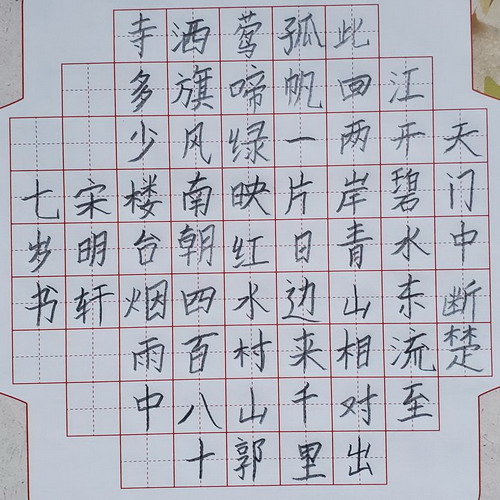 天门中断楚
江开碧水东流至
此回两岸青山相对出
孤帆一片日边来千里
莺啼绿映红水村山郭
洒旗风南朝四百八十
寺多少楼台烟雨中
宋明轩
七岁书